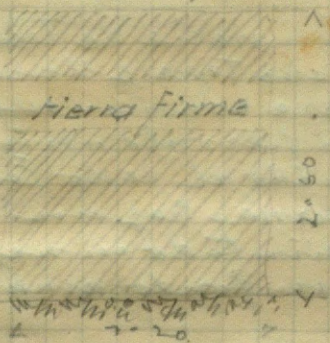 tierra firme
2.60
2.20